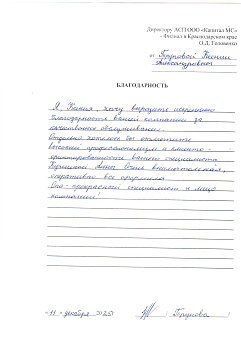 Директору АСП ООО «Капитал МС»
- Филиал в Краснодарском крае
О.Д. Головенко
от Ксении
Александровны
БЛАГОДАРНОСТЬ
Я Ксения, хочу выразить искреннюю
благодарность вашей компании за
качественное обслуживание.
Отдельно хотелось бы отметить
высокий профессионализм и клиенто-
ориентированность вашего специалиста
Анны. Очень внимательная,
оперативно все оформила.
Она - прекрасный специалист и лицо
компании!
«11» декабря 2025г